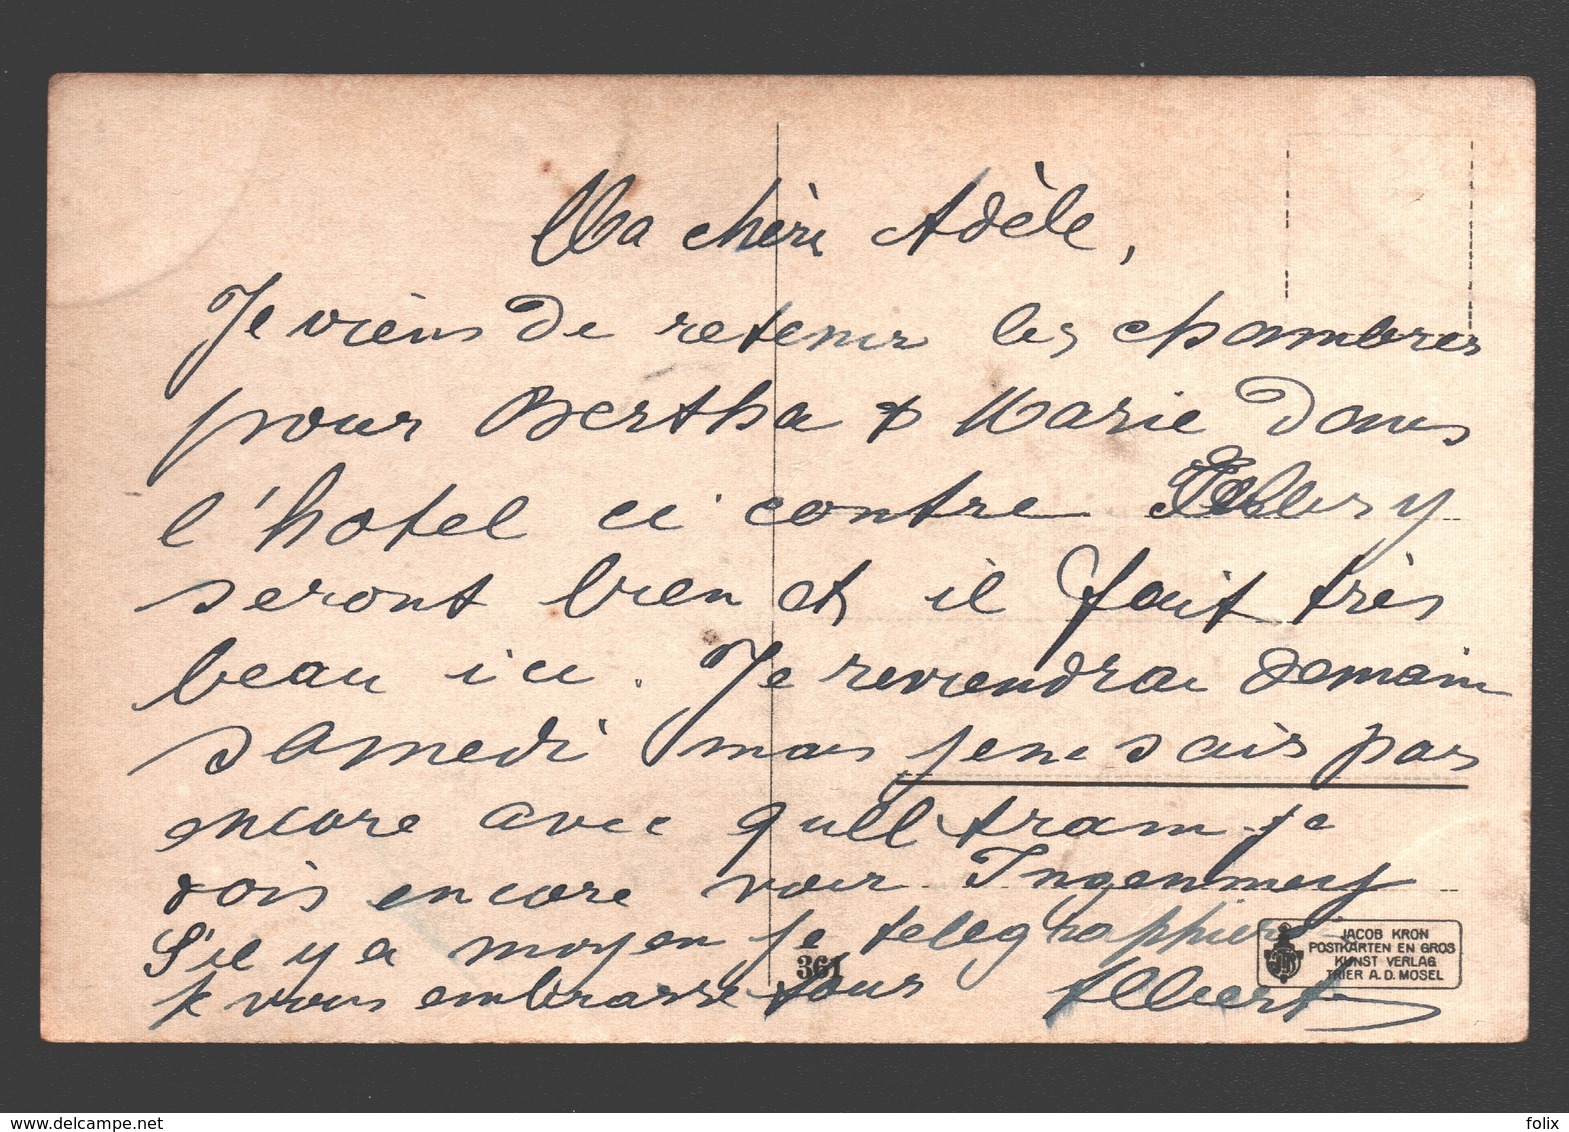 Ma chèri Adèle,
Je viens de retenir les chambres
pour Bertha & Marie dans
l'hôtel ci contre Elles y
seront bien et il fait très
beau ici. Je reviendrai demain
samedi mais je ne sais pas
encore avec quell tram je
dois encore voir Ingenmey
S'il y a moyen je telegraphierai
je vous embrasse tous Albert
361
JACOB KRON
POSTKARTEN EN GROS
KUNST VERLAG
TRIER A.D. MOSEL
delcampe.net
folix